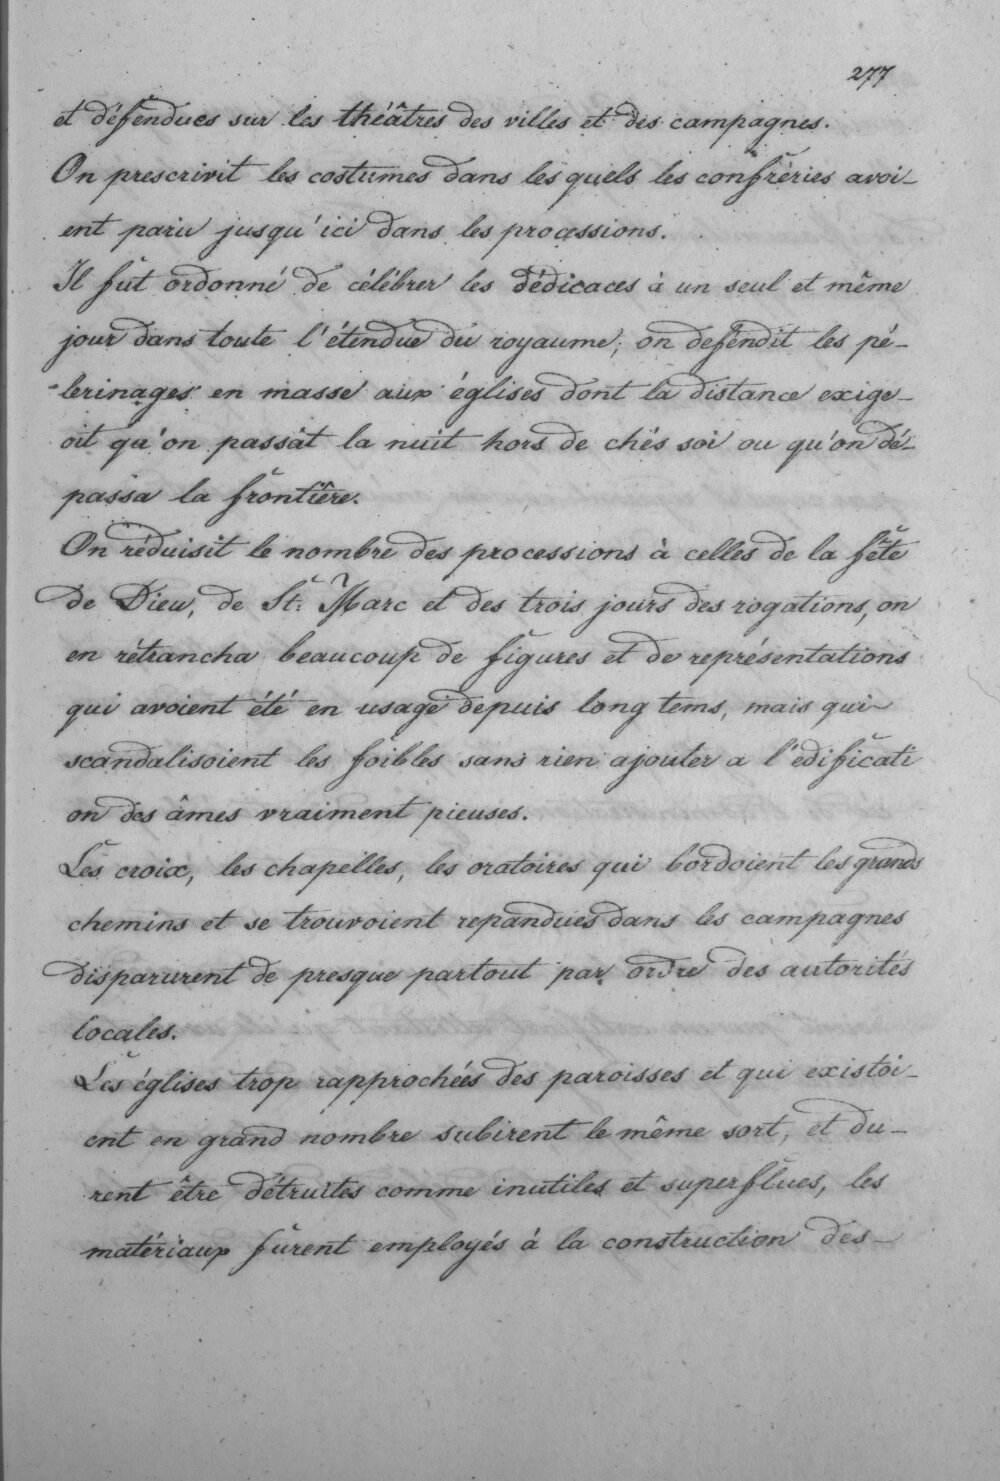 277
et défendues sur les théâtres des villes et des campagnes.
On prescrivit les costumes dans les quels les confrèries avoi-
ent paru jusqu'ici dans les processions.
Il fut ordonné de célébrer les dédicaces à un seul et même
jour dans toute l'étendue du royaume; on defendit les pé-
lerinages en masse aux églises dont la distance exige-
oit qu'on passât la nuit hors de chés soi ou qu'on dé-
passa la frontière.
On réduisit le nombre des processions à celles de la fête
de Dieu, de St: Marc et des trois jours des rogations, on
en rétrancha beaucoup de figures et de représentations
qui avoient été en usage depuis long tems, mais qui
scandalisoient les foibles sans rien ajouter a l'édificati
on des âmes vraiment pieuses.
Les croix, les chapelles, les oratoires qui bordoient les grands
chemins et se trouvoient repandues dans les campagnes
disparurent de presque partout par ordre des autorités
locales.
Les églises trop rapprochées des paroisses et qui existoi-
ent en grand nombre subirent le même sort, et du-
rent être détruites comme inutiles et superflues, les
matériaux furent employés à la construction des-